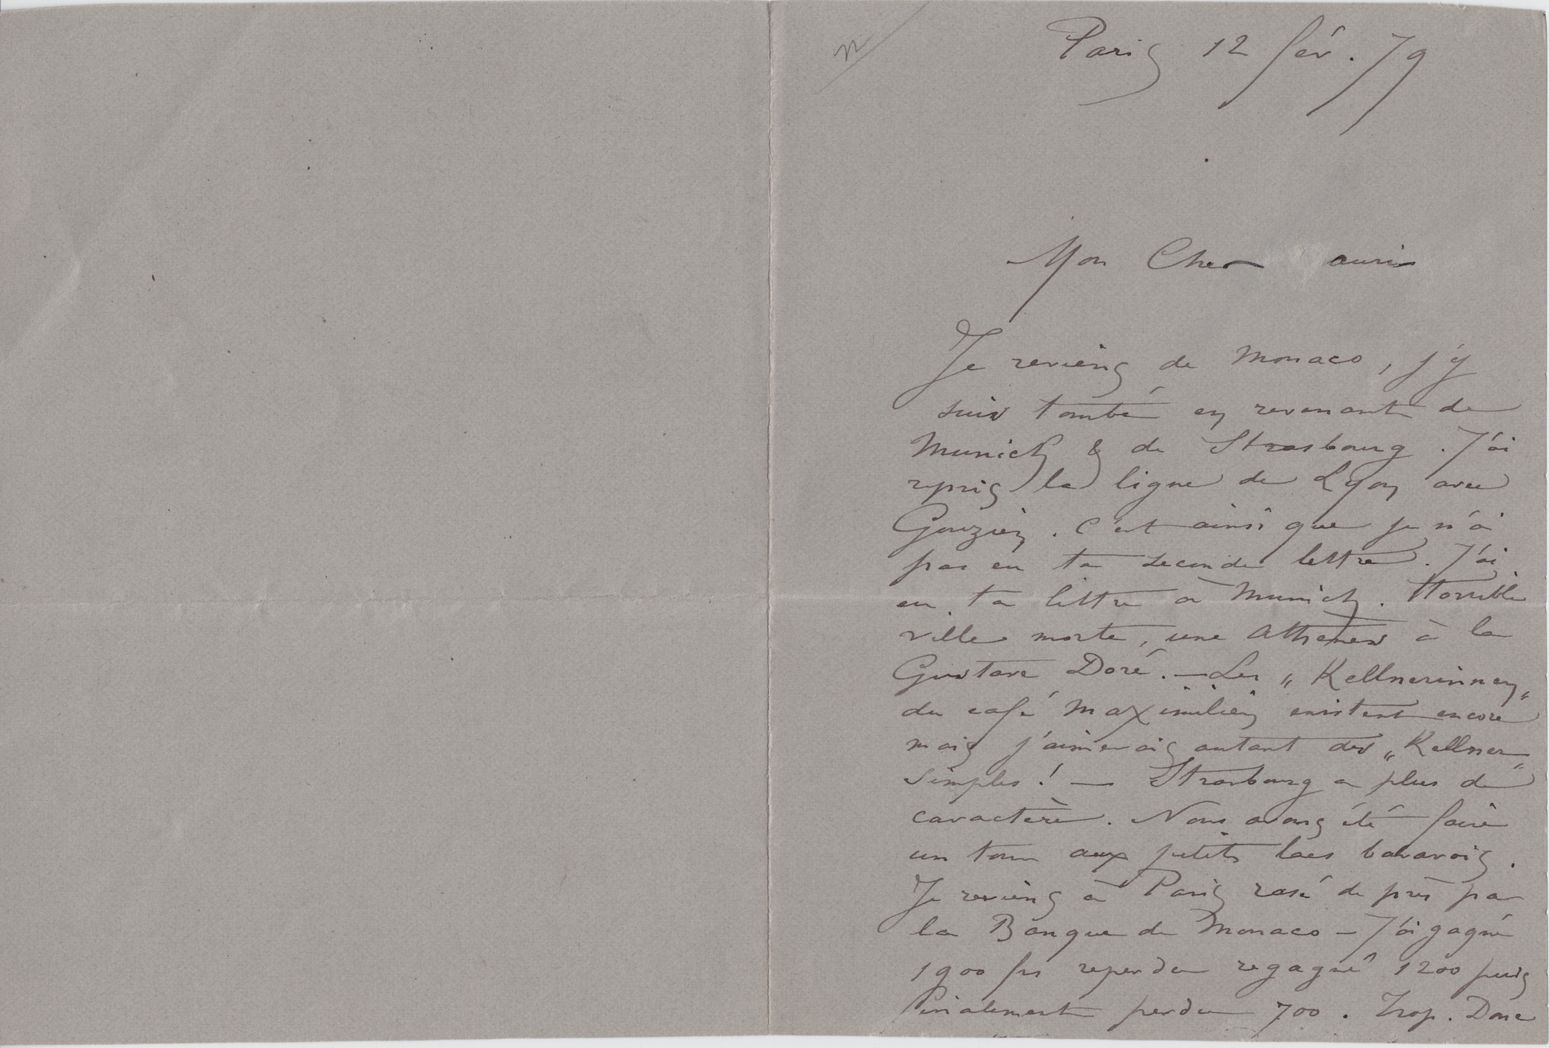 n
Paris 12 fév. 79
Mon Cher auris
Je reviens de Monaco, j'y
suis tombé en revenant de
Munich & de Strasbourg. J'ai
repris la ligne de Lyon avec
Gouzien. C'est ainsi que je n'ai
pas eu ta seconde lettre. J'ai
eu ta lettre à Munich. Horrible
ville morte, une Athènes à la
Gustave Doré. — Les „Kellnerinnen"
du café Maximilien existent encore
mais j'aimerais autant des „Kellner"
simples ! — Strasbourg a plus de
caractère. Nous avons été faire
un tour aux petits lacs bavarois.
Je reviens à Paris rasé de près par
la Banque de Monaco — J'ai gagné
1900 frs reperdu regagné 1200 puis
finalement perdu 700. Trop. Donc